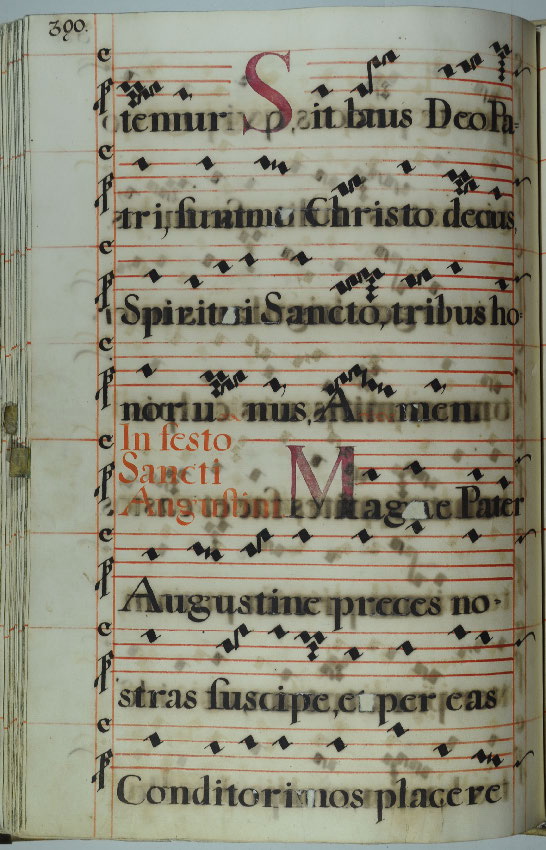 390.
temur Sit laus Deo Pa-
tri, summo Christo decus,
Spiritui Sancto, tribus ho-
nor unus, Amen.
In festo
Sancti
Augustini Magne Pater
Augustine preces no-
stras suscipe, et per eas
Conditori nos placere